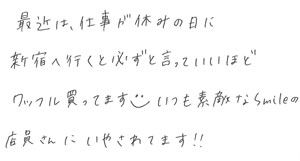 最近は、仕事が休みの日に
新宿へ行くと必ずと言っていいほど
ワッフル買ってます いつも素敵なsmileの
店員さんにいやされてます!!